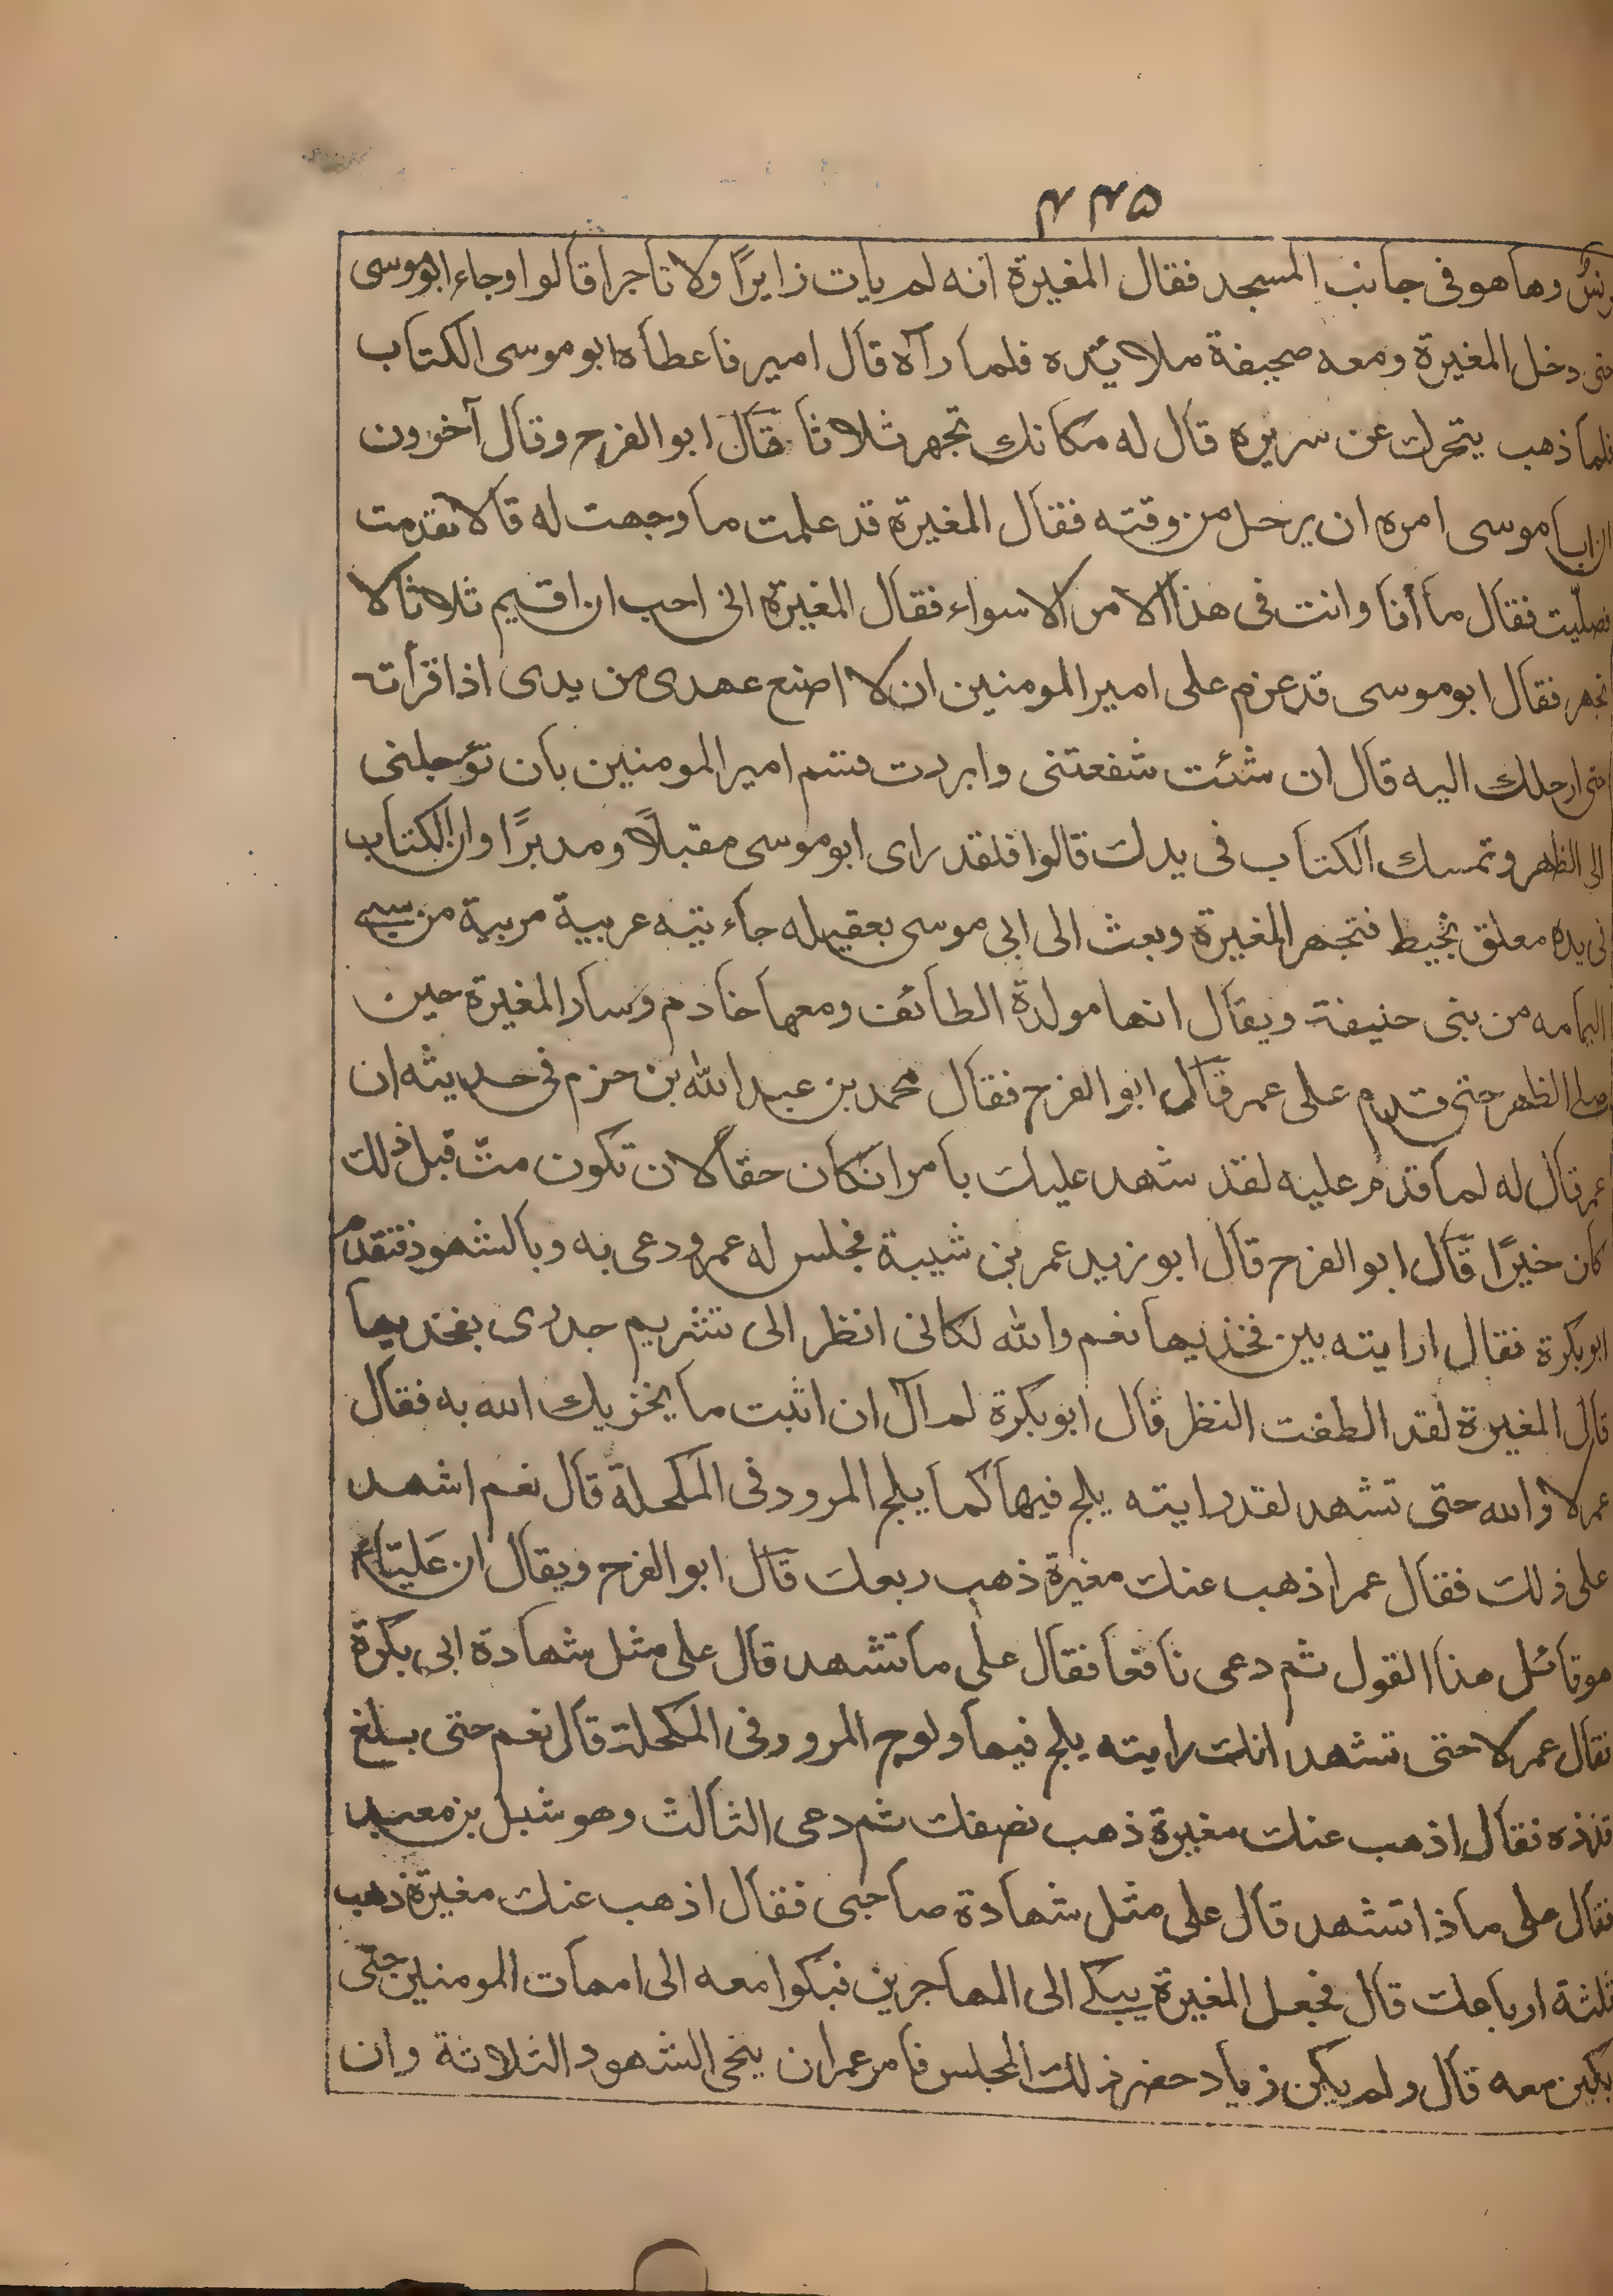 ۵۳۳
برنس وها هو فى جانب المسجد فقال المغيرة انه لم يات زايرًا ولا تاجرا قالوا وجاء ابو موسى
حتى دخل المغيرة ومعه صحيفة ملا يئده فلما رآه قال امير فاعطاه ابو موسى الكتاب
فلما ذهب يتحرك عن سريره قال له مكانك تجهر ثلاثا قال ابو الفرج وقال آخرون
ان ابا موسى امره ان يرحل من وقته فقال المغيرة قد علمت ما وجهت له قالا تقدمت
فصلّيت فقال ما أنا وانت فى هذا الامر الا سواء فقال المغيرة انى احب ان اقيم ثلاثا لا
تجهر فقال ابو موسى قد عزم على امير المومنين ان لا اضع عهدى من يدى اذا قرأته
حتى ارحلك اليه قال ان شئت شفعتنى وابردت قسم امير المومنين بان توجلنى
الى الظهر وتمسك الكتاب فى يدك قالوا فلقد راى ابو موسى مقبلًا ومدبرًا وان الكتاب
فى يده معلق بخيط فتجهر المغيرة وبعث الى ابى موسى بعقيله جاءيتيه عربية مربية من سبي
اليمامه من بنى حنيفة ويقال انها مولدة الطائف ومعها خادم وسار المغيرة حين
صلى الظهر حتى قدم على عمر قال ابو الفرج فقال محمد بن عبد الله بن حزم فى حديثه ان
عمر قال له لما قدم عليه لقد شهد عليك بامر ان كان حقا لان تكون متّ قبل ذلك
كان خيرًا قال ابو الفرج قال ابو زيد عمر بن شيبة فجلس له عمر ودعى به وبالشهود فتقدم
ابو بكرة فقال ارايته بين فخذيها نعم والله لكانى انظر الى تشريم جدرى بفخذيها
قال المغيرة لقد الطفت النظر قال ابو بكرة لم آل ان اثبت ما يخزيك الله به فقال
عمر لا والله حتى تشهد لقد رايته يلج فيها كما يلج المرود فى المكحلة قال نعم اشهد
على ذلك فقال عمر اذهب عنك مغيرة ذهب ربعك قال ابو الفرج ويقال ان عليّا
هو قائل هذا القول ثم دعى نافعا فقال على ما تشهد قال على مثل شهادة ابى بكرة
فقال عمر لا حتى تشهد انك رايته يلج فيها ولوج المرود فى المكحلة قال نعم حتى بلغ
قذذه فقال اذهب عنك مغيرة ذهب نصفك ثم دعى الثالث وهو شبل بن معبد
فقال على ماذا تشهد قال على مثل شهادة صاحبى فقال اذهب عنك مغيرة ذهب
ثلثة ارباعك قال فجعل المغيرة يبكى الى المهاجرين فبكوا معه الى امهات المومنين حتى
بكين معه قال ولم يكن زياد حضر ذلك المجلس فامر عمر ان ينحى الشهود الثلاثة وان